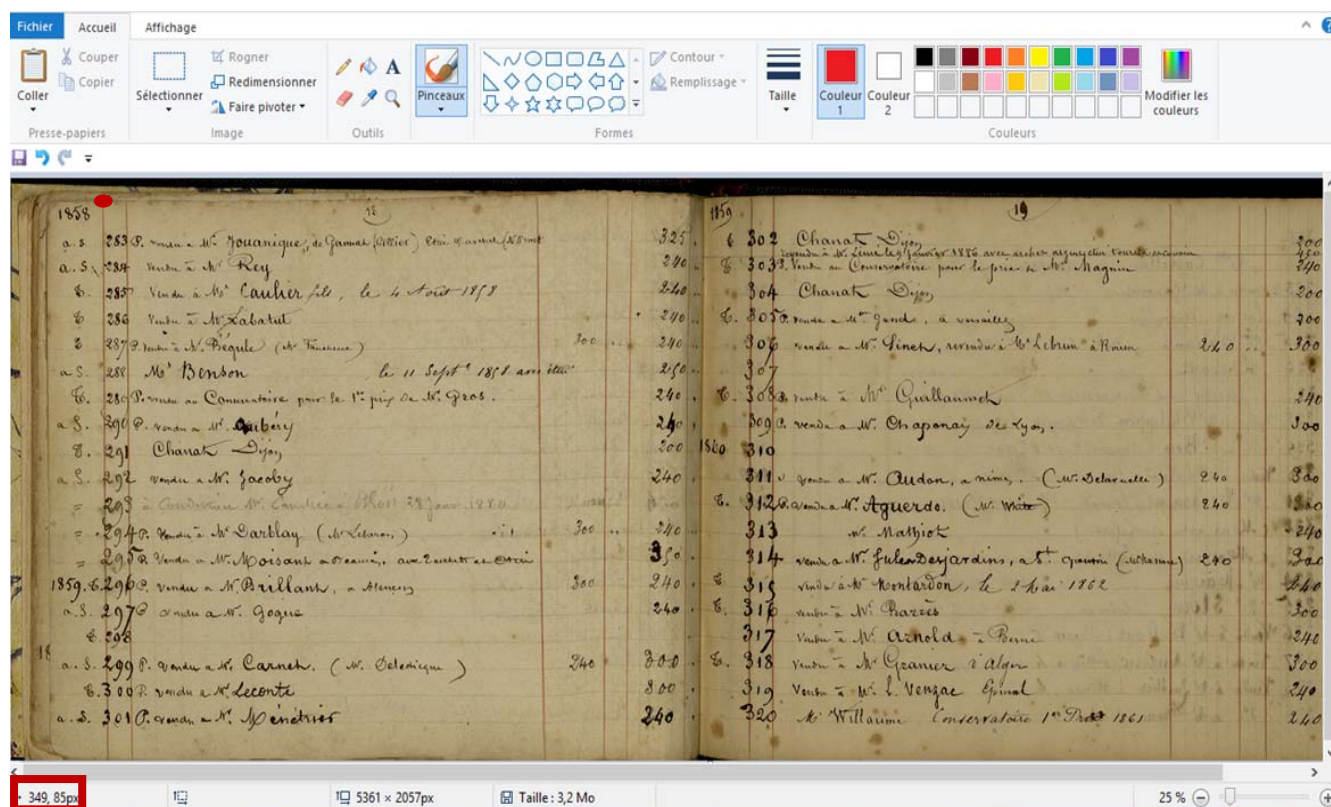 Fichier Accueil Affichage
Coller Couper Copier
Presse-papiers
Sélectionner Rogner Redimensionner Faire pivoter
Image
A
Outils
Pinceaux
Contour Remplissage
Formes
Taille
Couleur 1 Couleur 2
Modifier les couleurs
Couleurs
1858 18
a. s. 283 P. vendu a Mr. Jouanique, de Gannat 325
a. S. 284 Vendu à Mr Rey 240
C. 285 Vendu à Mr Caulier fils, le 4 Août 1858 240
C 286 Vendu à Mr Labatut 240
C 287 P. vendu à Mr. Bégule 300 240
a. S. 288 Mr Benson le 11 Septe 1858 250
C. 289 P. vendu au Conservatoire pour le 1er prix de Mr. Gros. 240
a. S. 290 P. vendu a Mr. Aubéry 240
C. 291 Chanat Dijon 200
a. S. 292 vendu a Mr. Jacoby 240
= 293
= 294 P. Vendu à Mr Darblay (Mr Lebaron) 300 240
= 295 P. Vendu a Mr. Moisant 350
1859. C. 296 P. vendu a Mr Brillant, a Alençon 300 240
a. S. 297 P vendu a Mr. Gogue 240
C. 298
18 a. S. 299 P. vendu a Mr. Carnet. (Mr. Deledicque) 240 300
C. 300 P. vendu a Mr. Leconte 300
a. S. 301 P. vendu a Mr. Ménétrier 240
1859 19
C 302 Chanat Dijon 200
C 303 P. Vendu au Conservatoire pour le prix de Mr. Magnin 240
304 Chanat Dijon 200
C. 305 P. vendu a Mr Gand, a versailles 200
306 vendu a Mr. Sinet, revendu à Mr Lebrun à Rouen 240 300
307
C. 308 P. vendu à Mr Guillaumet 240
309 P. vendu a Mr. Chaponay de Lyon. 300
1860 310
311 vendu a Mr. Audon, a nimes. (Mr. Delaruelle) 240 300
C. 312 P. vendu a Mr. Aguerdo. 240 300
313 Mr. Mathiot 240
314 vendu a Mr. Jules Desjardins, a St quentin 240 300
C. 315 vendu à Mr Montardon, le 2 Mai 1862 240
C. 316 vendu à Mr. Barrès 300
317 Vendu à Mr Arnold à Berne 240
C. 318 vendu à Mr Granier d'Alger 300
319 Vendu à Mr. L. Venzac Epinal 240
320 Mr Willaume Conservatoire 1er Prix 1861 240
349, 85px 5361 × 2057px Taille : 3,2 Mo 25 %